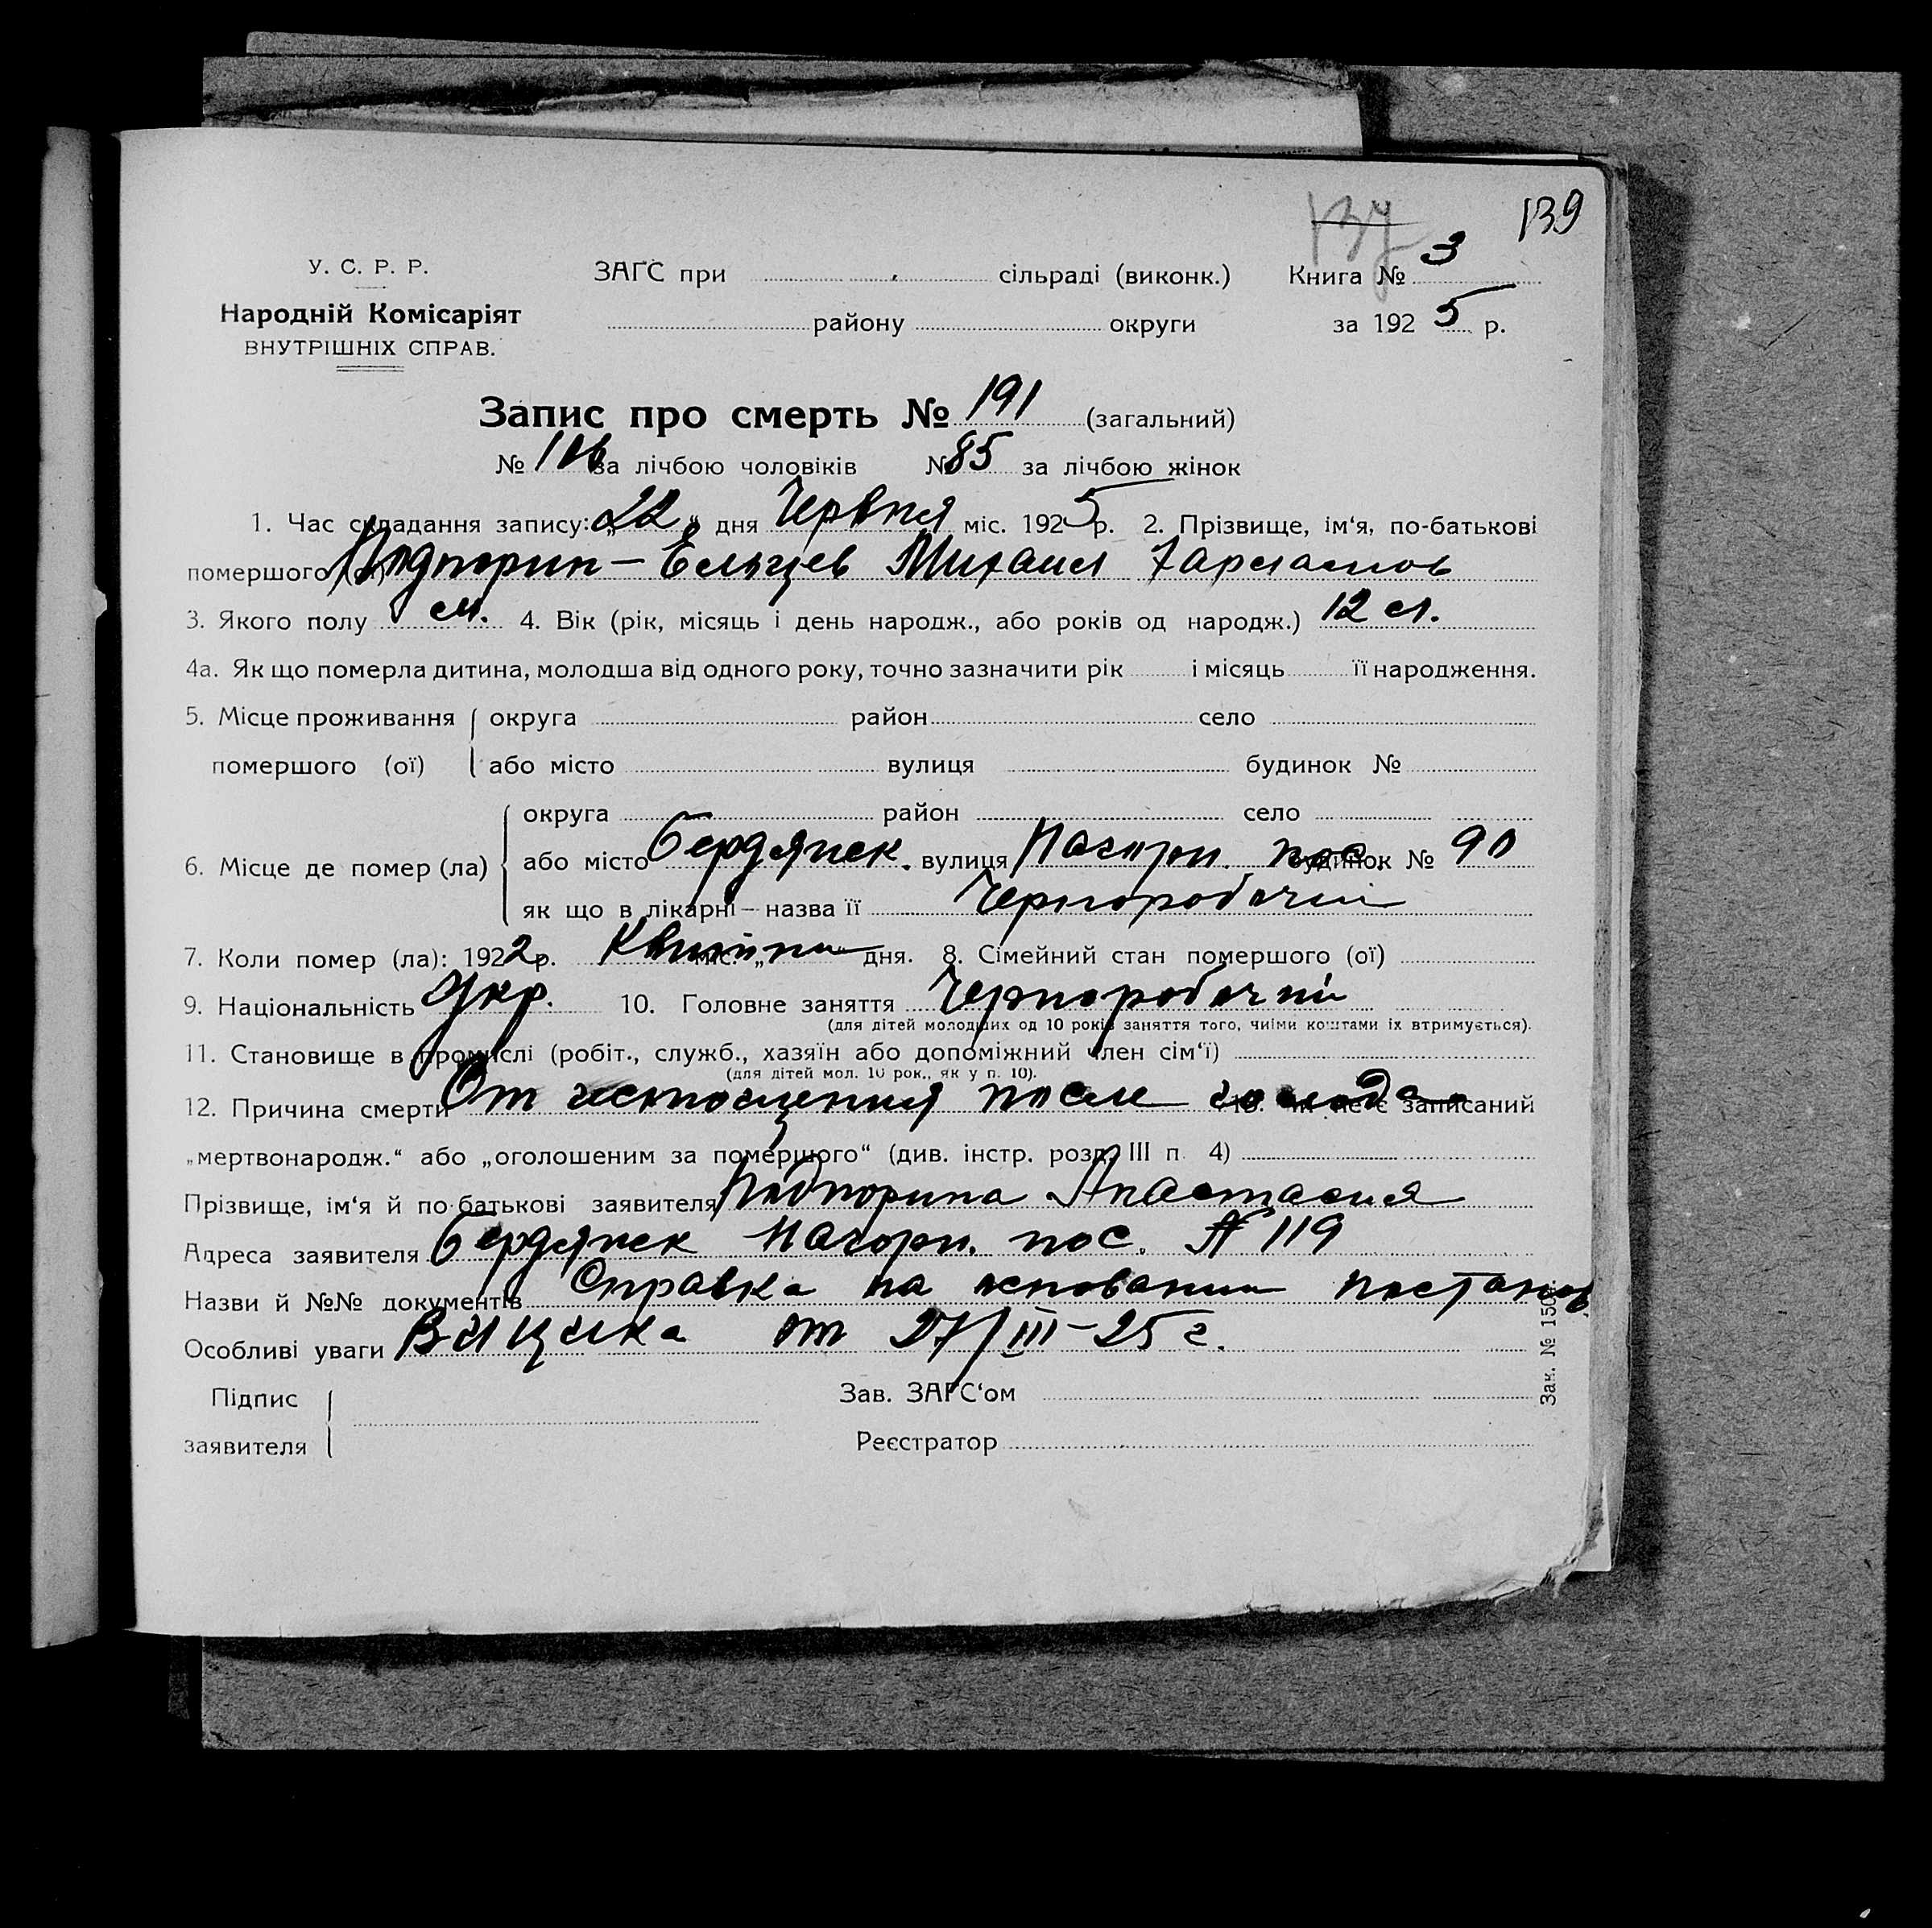 137 139
У. С. Р. Р. ЗАГС при сільраді (виконк.) Книга № 3
Народній Комісаріят району округи за 1925 р.
ВНУТРІШНІХ СПРАВ.
Запис про смерть № 191 (загальний)
№ 106 за лічбою чоловіків № 85 за лічбою жінок
1. Час складання запису: „22“ дня Червня міс. 1925 р. 2. Прізвище, ім‘я, по-батькові
помершого (ої) Подпорин – Ельцев Михаил
3. Якого полу м. 4. Вік (рік, місяць і день народж., або років од народж.) 12 л.
4а. Як що померла дитина, молодша від одного року, точно зазначити рік і місяць її народження.
5. Місце проживання округа район село
помершого (ої) або місто вулиця будинок №
округа район село
6. Місце де помер (ла) або місто Бердянск. вулиця Нагорн. пос. будинок № 90
як що в лікарні – назва її Черноробочий
7. Коли помер (ла): 1922 р. Квитня міс. „ “ дня. 8. Сімейний стан помершого (ої)
9. Національність Укр. 10. Головне заняття Чернорабочий
(для дітей молодших од 10 років заняття того, чиїми коштами їх втримується).
11. Становище в промислі (робіт., служб., хазяїн або допоміжний член сім‘ї)
(для дітей мол. 10 рок., як у п. 10).
12. Причина смерти От истощения после голода 13. записаний
„мертвонародж.“ або „оголошеним за помершого“ (див. інстр. розд. III п. 4)
Прізвище, ім‘я й по-батькові заявителя Подпорина Анастасия
Адреса заявителя Бердянск Нагорн. пос. № 119
Назви й №№ документів Справка на основании постанов
Особливі уваги ВУЦИКа от 27/III–25 г.
Підпис Зав. ЗАГС‘ом
заявителя Реєстратор
Зак. № 150